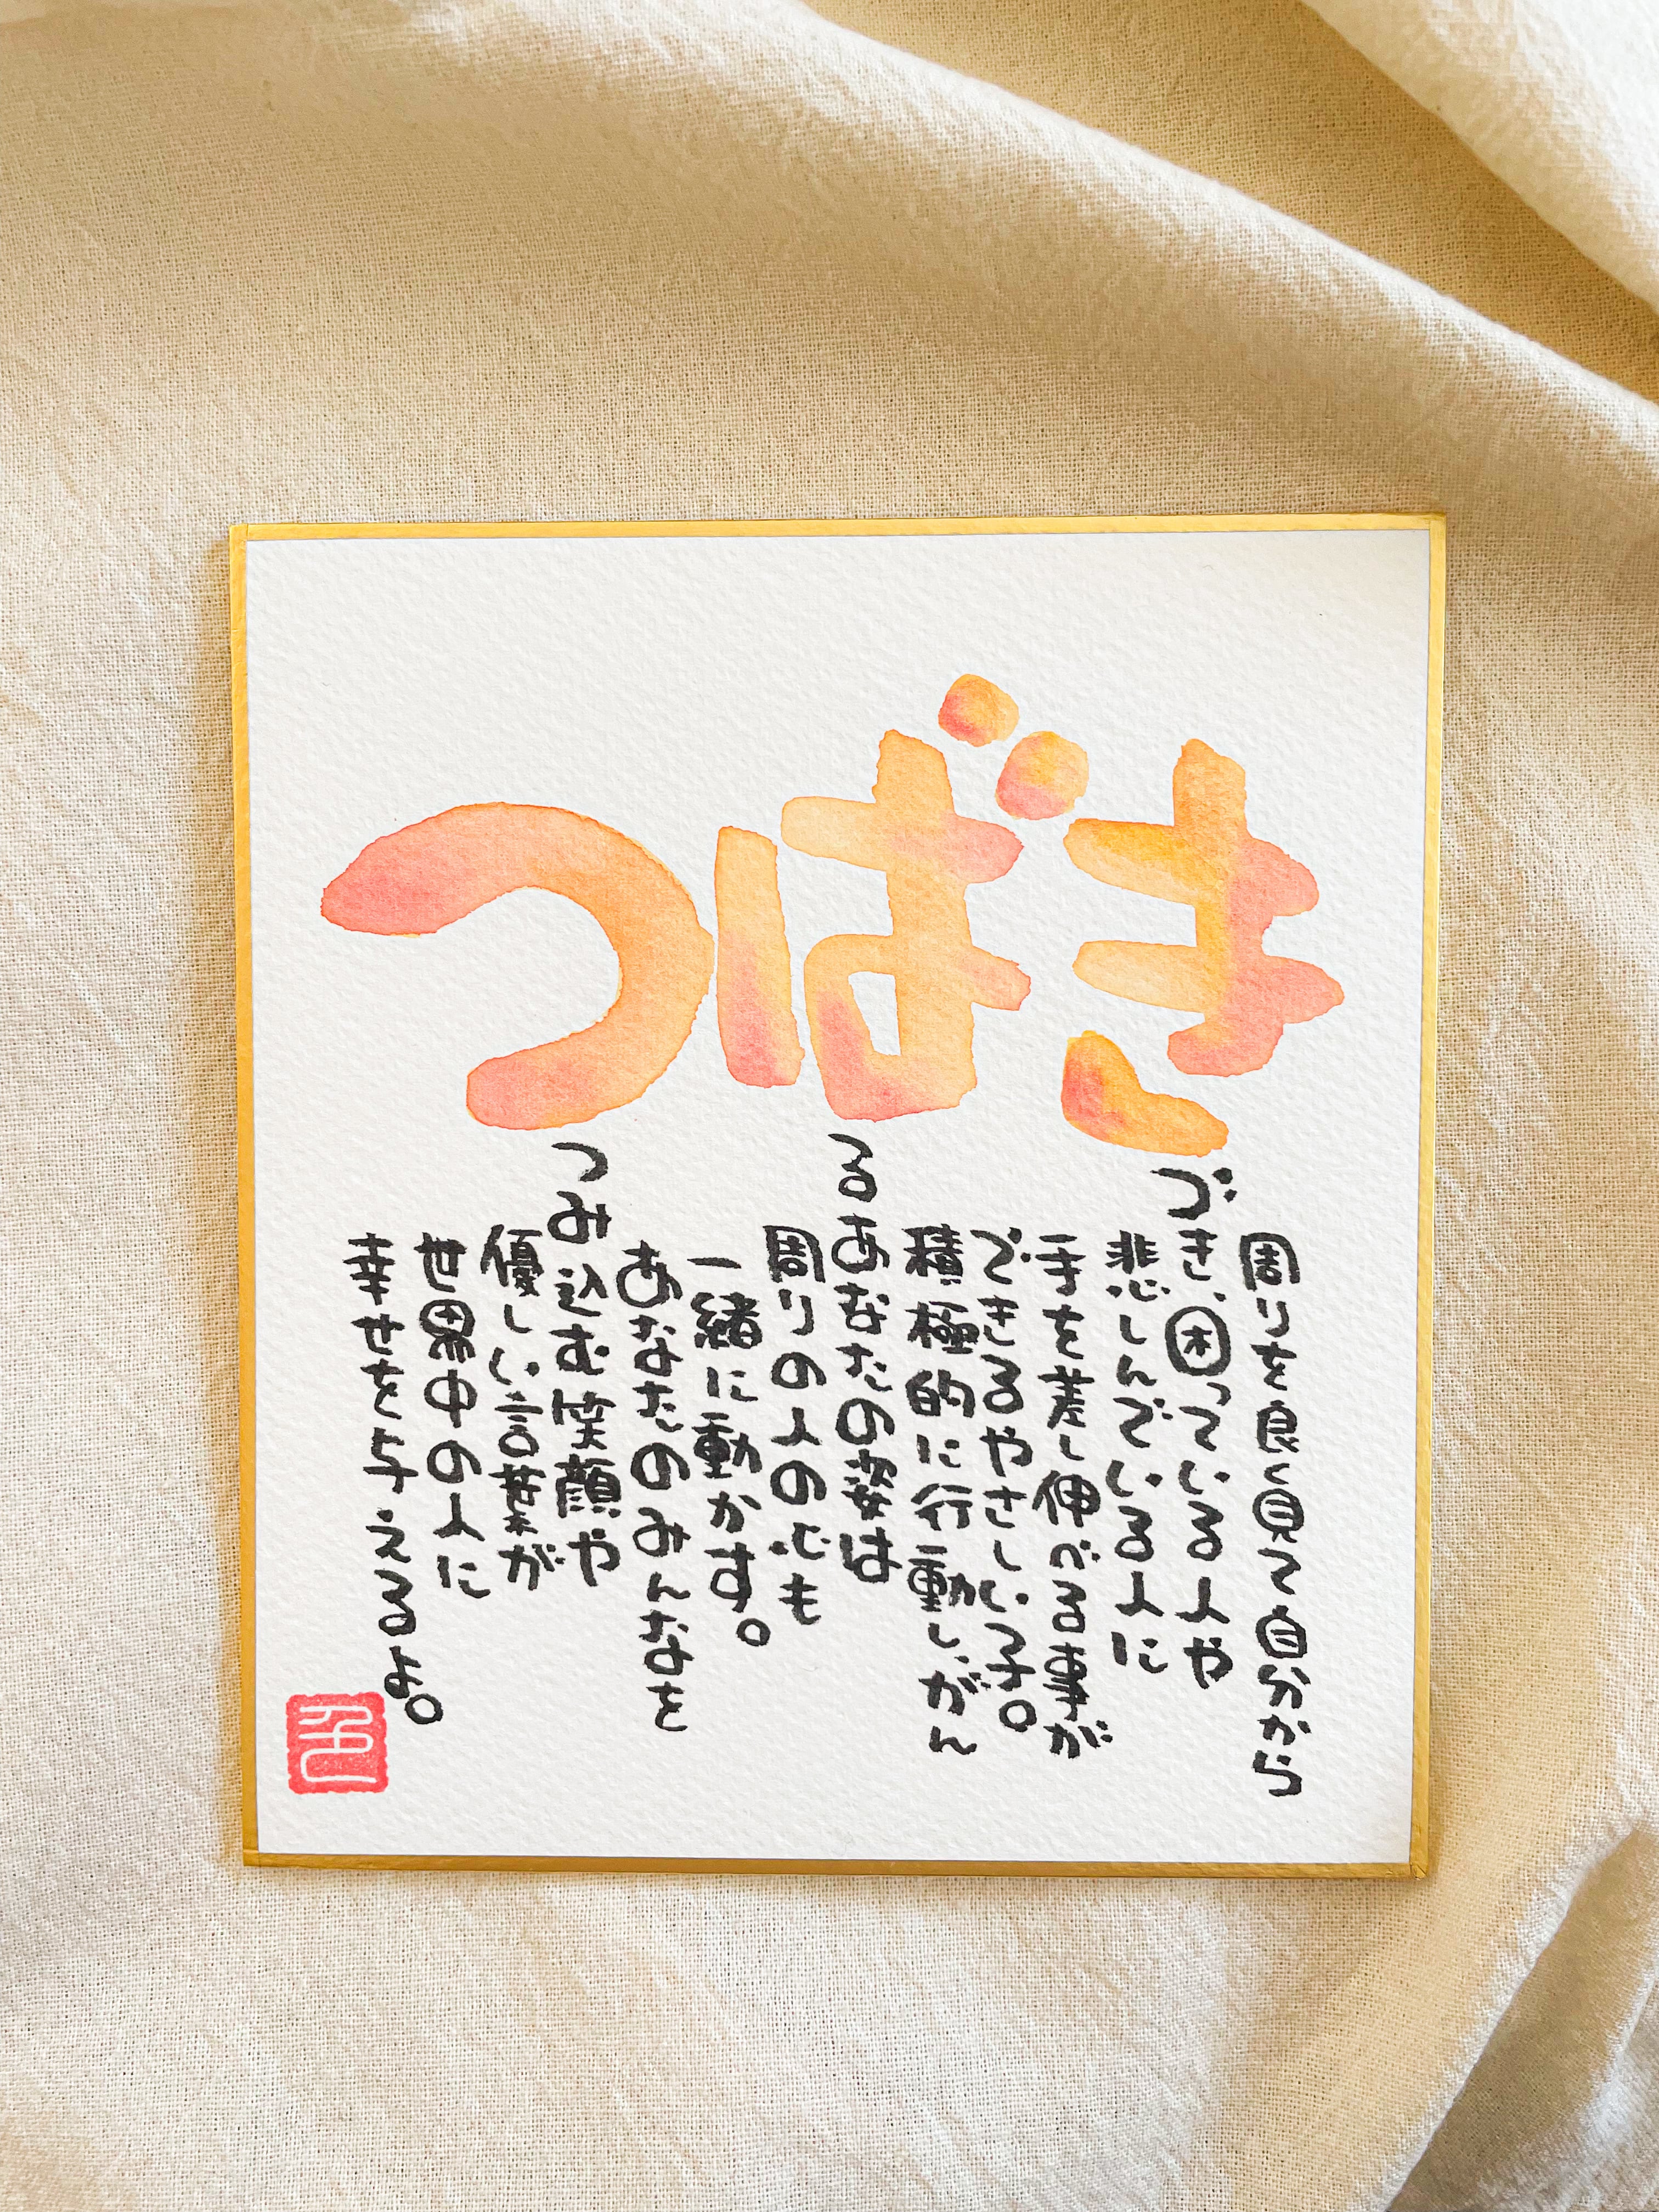 つばき
周りを良く見て自分から
づき、困っている人や
悲しんでいる人に
手を差し伸べる事が
できるやさしい子。
積極的に行動しがん
るあなたの姿は
周りの人の心も
一緒に動かす。
あなたのみんなを
つみ込む笑顔や
優しい言葉が
世界中の人に
幸せを与えるよ。